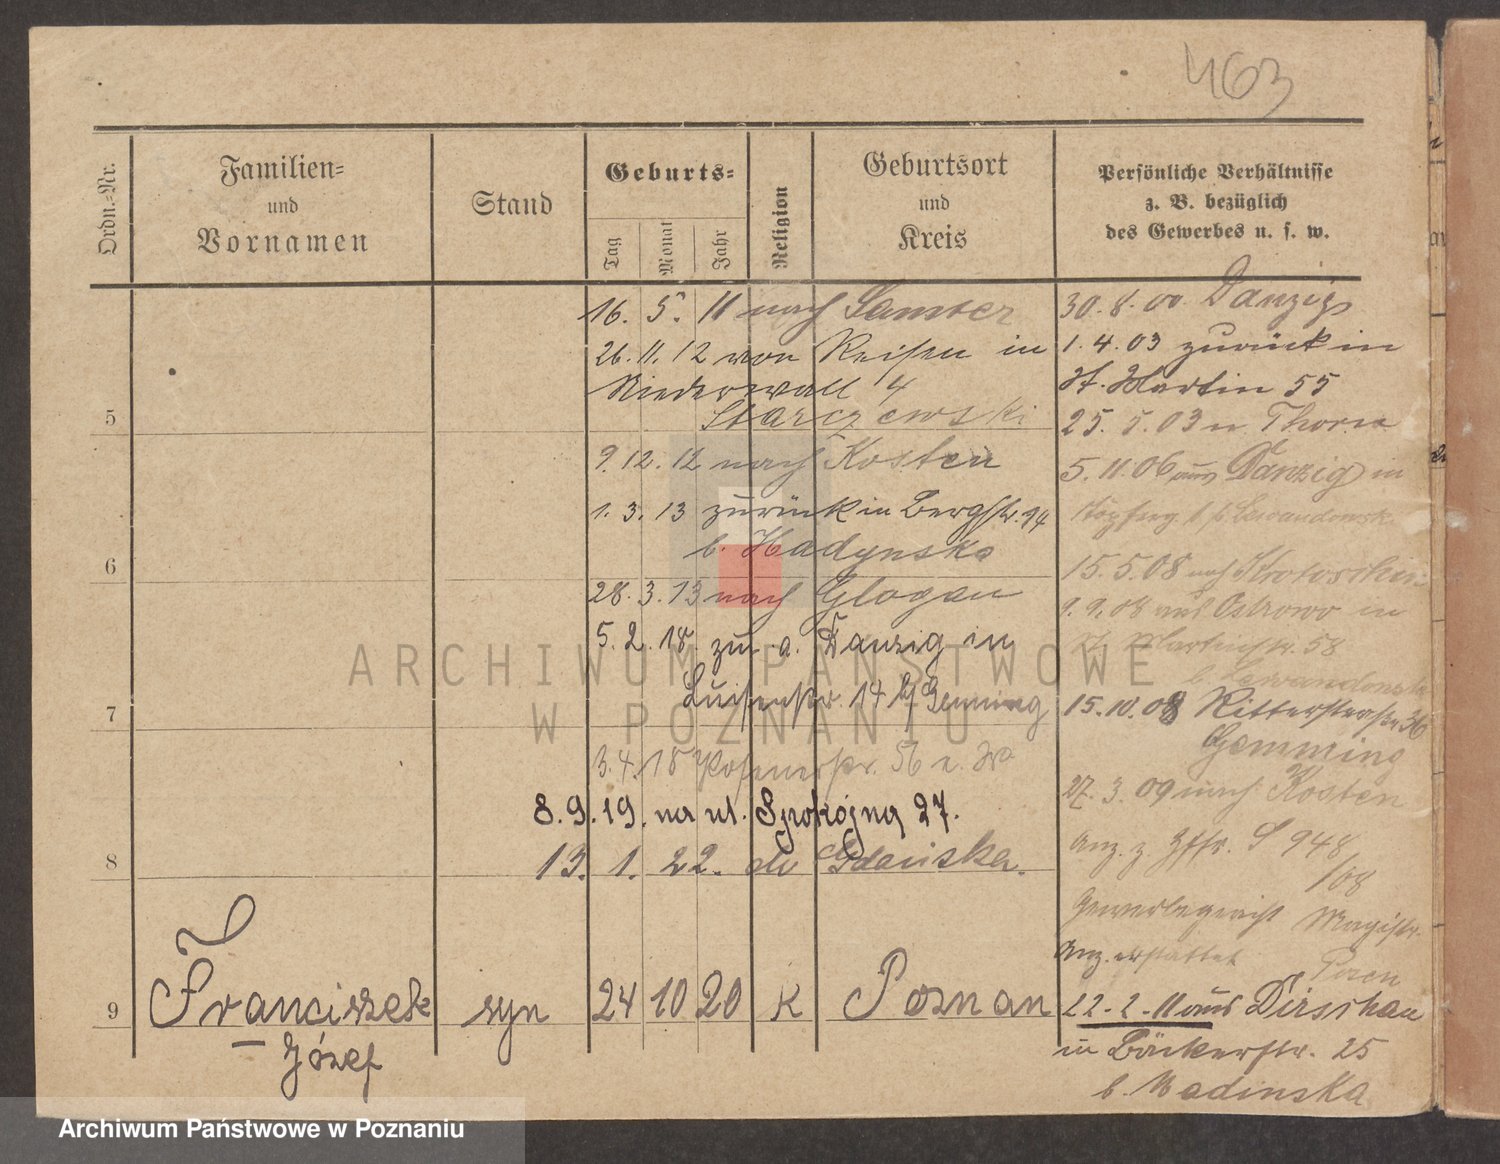 463
Ordn.-Nr.
Familien-
und
Vornamen
Stand
Geburts-
Tag
Monat
Jahr
Religion
Geburtsort
und
Kreis
Persönliche Verhältnisse
z. B. bezüglich
des Gewerbes u. s. w.
16. 5. 11 nach Samter
26. 11. 12 von Reisen in
Niederwall 4
5
Starczewski
9. 12. 12 nach Kosten
1. 3. 13 zurück in Bergstr. 94
b. Hadynska
6
28. 3. 13 nach Glogau
5. 2. 18. zu. a. Danzig in
Luisenstr. 14 b/ Gemming
7
3. 4. 18 Posenerstr. 56
8. 9. 19. na ul. Spokojną 27.
8
13. 1. 22. do Gdańska.
9
Franciszek
Józef
syn
24 10 20 K Poznan
30. 8. 00 Danzig
1. 4. 03 zurück in
St. Martin 55
25. 5. 03 n. Thorn
5. 11. 06 aus Danzig in
Lewandowsk
15. 5. 08 nach Krotoschin
9. 9. 08 aus Ostrowo in
St. Martinstr. 58
b. Lewandowska
15. 10. 08 Ritterstr 36
Gemming
27. 3. 09 nach Kosten
Anz. z. S 948
/08
Gewerbegericht Magistr.
Anz. erstattet Posen
22. 2. 11 aus Dirschau
in Bäckerstr. 25
b. Madinska
ARCHIWUM PAŃSTWOWE
W POZNANIU
Archiwum Państwowe w Poznaniu